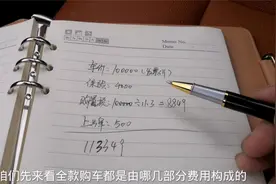 Memo No.
Date
车价:100000(发票价)
保险:4000
购置税:100000÷11.3=8849
上牌:500
113349
咱们先来看全款购车都是由哪几部分费用构成的